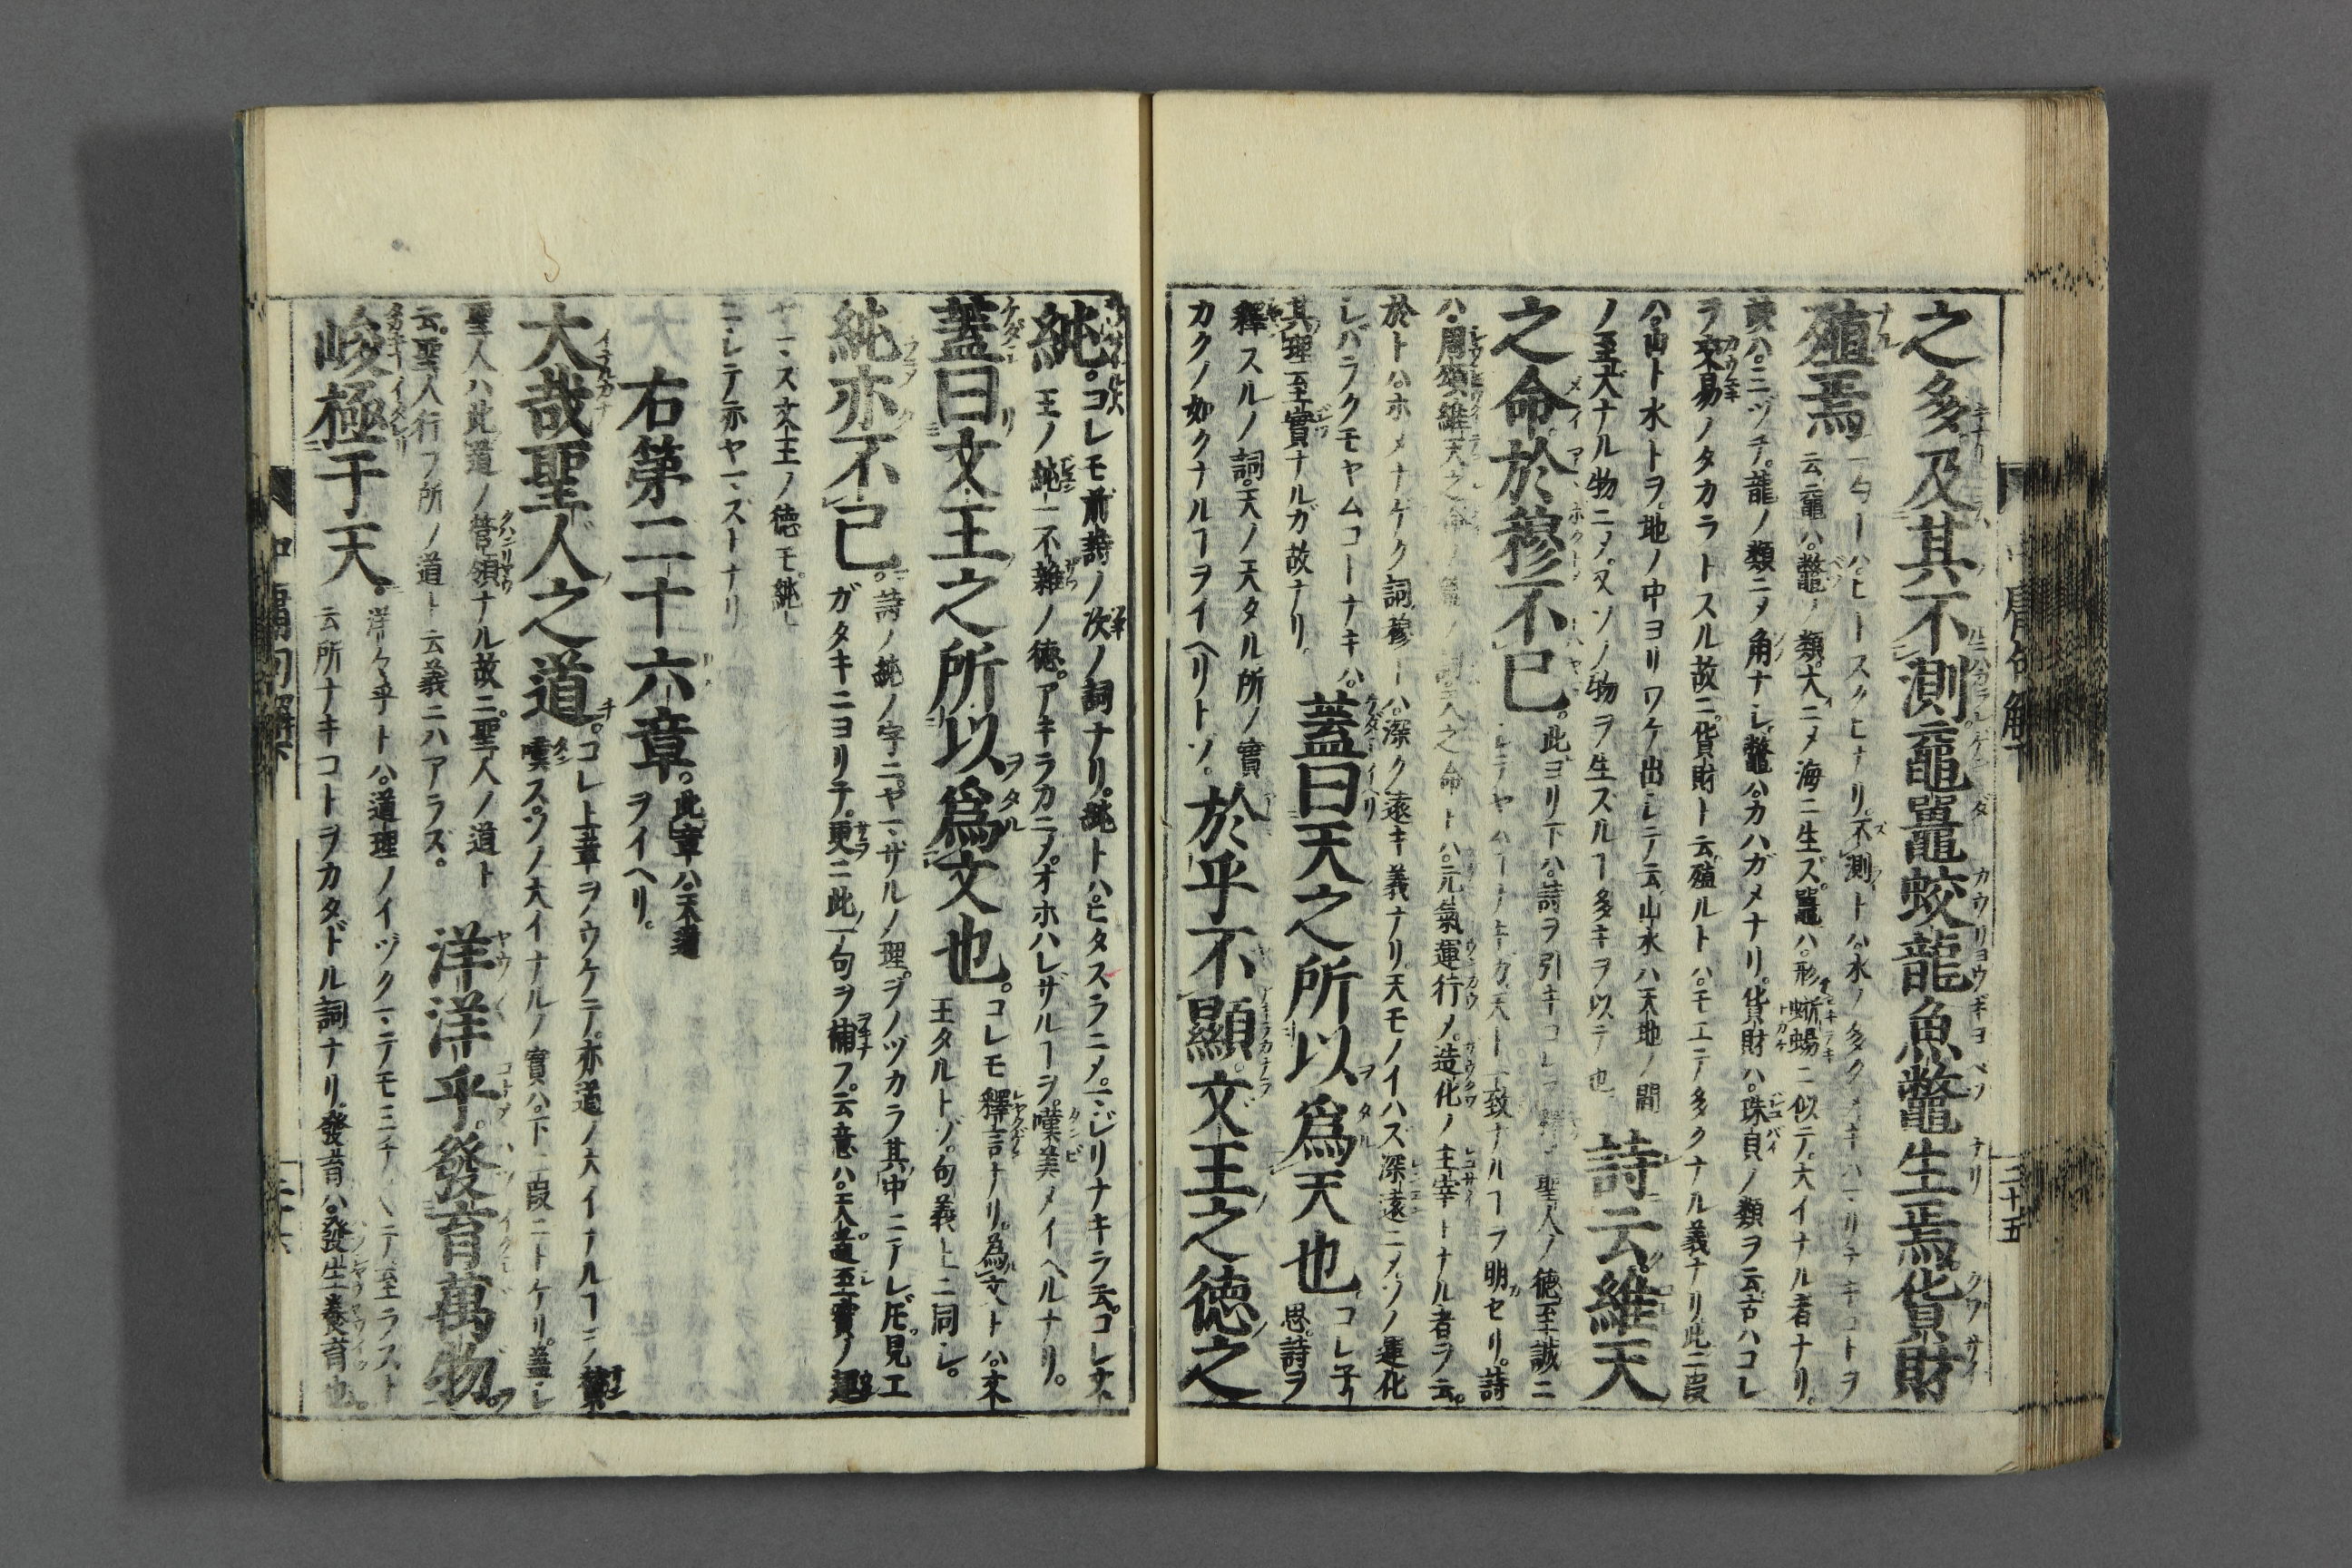 之多及其不測。黿鼉蛟龍魚鼈生焉。貨財
殖焉
一勺ーハ。ヒトスクヒナリ。不測トハ。水ノ多クメキハマリナキコトヲ
云。黿ハ。鼈ノ類。大ニメ海ニ生ズ。鼉ハ。形蜥蜴ニ似テ。大イナル者ナリ。
蛟ハ。ミヅチ。龍ノ類ニメ角ナシ。鼈ハ。カハガメナリ。貨財ハ。珠貝ノ類ヲ云。古ハコレ
ヲ交易ノタカラトスル故ニ。貨財ト云。殖ルトハ。モエテ多クナル義ナリ。此二段
ハ。山ト水トヲ。地ノ中ヨリワケ出シテ云。山水ハ天地ノ間
ノ至大ナル物ニメ。又ソノ物ヲ生ズルヿ多キヲ以テ也
詩云。維天
之命。於穆不已。
此ヨリ下ハ。詩ヲ引キコレヲ釋メ聖人ノ徳。至誠ニ
シテヤムヿナキガ。天ト一致ナルヿヲ明セリ。詩
ハ。周頌維天之命ノ篇ノ詞。天之命トハ。元氣運行メ。造化ノ主宰トナル者ヲ云。
於トハ。ホメナゲク詞。穆ーハ。深ク遠キ義ナリ。天モノイハズ深遠ニメ。ソノ運化
シバラクモヤムコーナキハ。
其理至實ナルガ故ナリ。
蓋曰天之所以爲天也
コレ子
思。詩ヲ
釋スルノ詞。天ノ天タル所ノ實
カクノ如クナルヿヲイヘリトソ。
於乎不顯。文王之德之
純。
コレモ前詩ノ次ノ詞ナリ。純トハ。ヒタスラニメ。マジリナキヲ云。コレ文
王ノ純一不雜ノ徳。アキラカニメ。オホハレザルヿヲ。嘆美メイヘルナリ。
蓋曰文王之所以爲文也。
コレモ釋言ナリ。為文トハ。文
王タルトゾ。句義上ニ同シ。
純亦不已。
詩ノ純ノ字ニ。ヤマザルノ理。ヲノヅカラ其中ニアレ𪜈。見エ
ガタキニヨリテ。更ニ此一句ヲ補フ。云意ハ。天道至實ノ運
ヤマズ文王ノ徳モ。純
ニシテ亦ヤマズトナリ
右第二十六章。
此章ハ。天道
ヲイヘリ。
大哉聖人之道。
コレ上章ヲノウケテ。亦道ノ大イナルヿヲノ
嘆ズ。ソノ大イナルノ實ハ。下二段ニトケリ。蓋シ
聖人ハ此道ノ管領ナル故ニ。聖人ノ道ト
云。聖人行フ所ノ道ト云義ニハアラズ。
洋洋乎。發育萬物。
峻極于天。
洋々乎トハ。道理ノイヅクマテモミチ〳〵テ至ラスト
云所ナキコトヲカタドル詞ナリ。發育ハ。發生養育也。
中庸句解下
三十五
中庸句解下